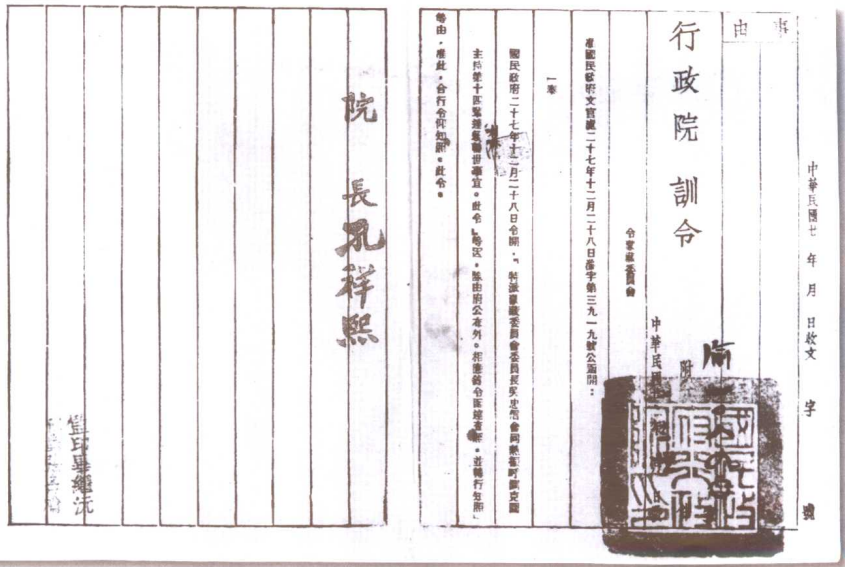 中華民國廿 年 月 日收文 字 號
事由
行政院訓令
渝
附
中華民國
令蒙藏委員會
准國民政府文官處二十七年十二月二十八日渝字第三九一九號公函開：
一奉
國民政府二十七年十二月二十八日令開：「特派蒙藏委員會委員長吳忠信會同熱振呼圖克圖
主持第十四輩達賴轉世事宜。此令」等因。除由府公布外。相應錄令函達查照。並轉行知照」
等由，准此，合行令仰知照。此令。
院長孔祥熙
監印畢繼沅